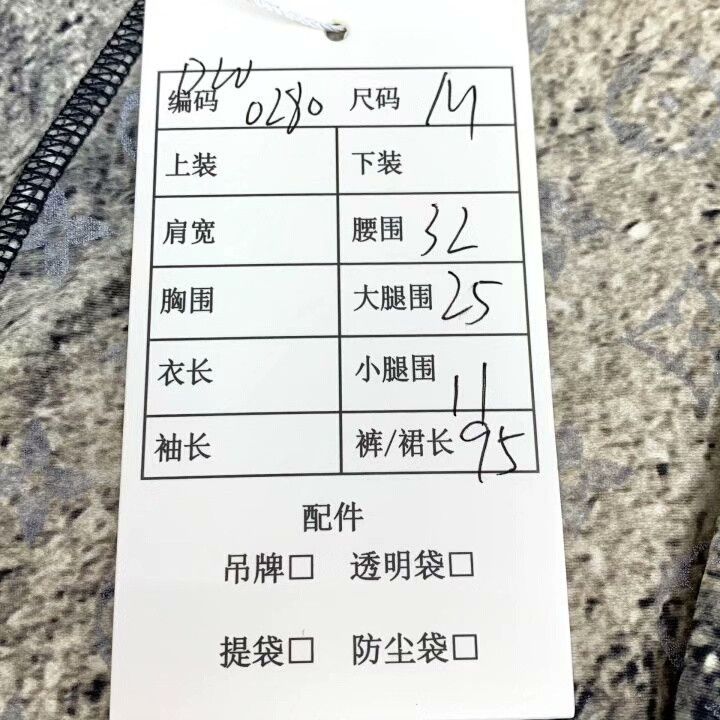 DW
编码 0280 尺码 M
上装 下装
肩宽 腰围 32
胸围 大腿围 25
衣长 小腿围 11
袖长 裤/裙长 95
配件
吊牌□ 透明袋□
提袋□ 防尘袋□